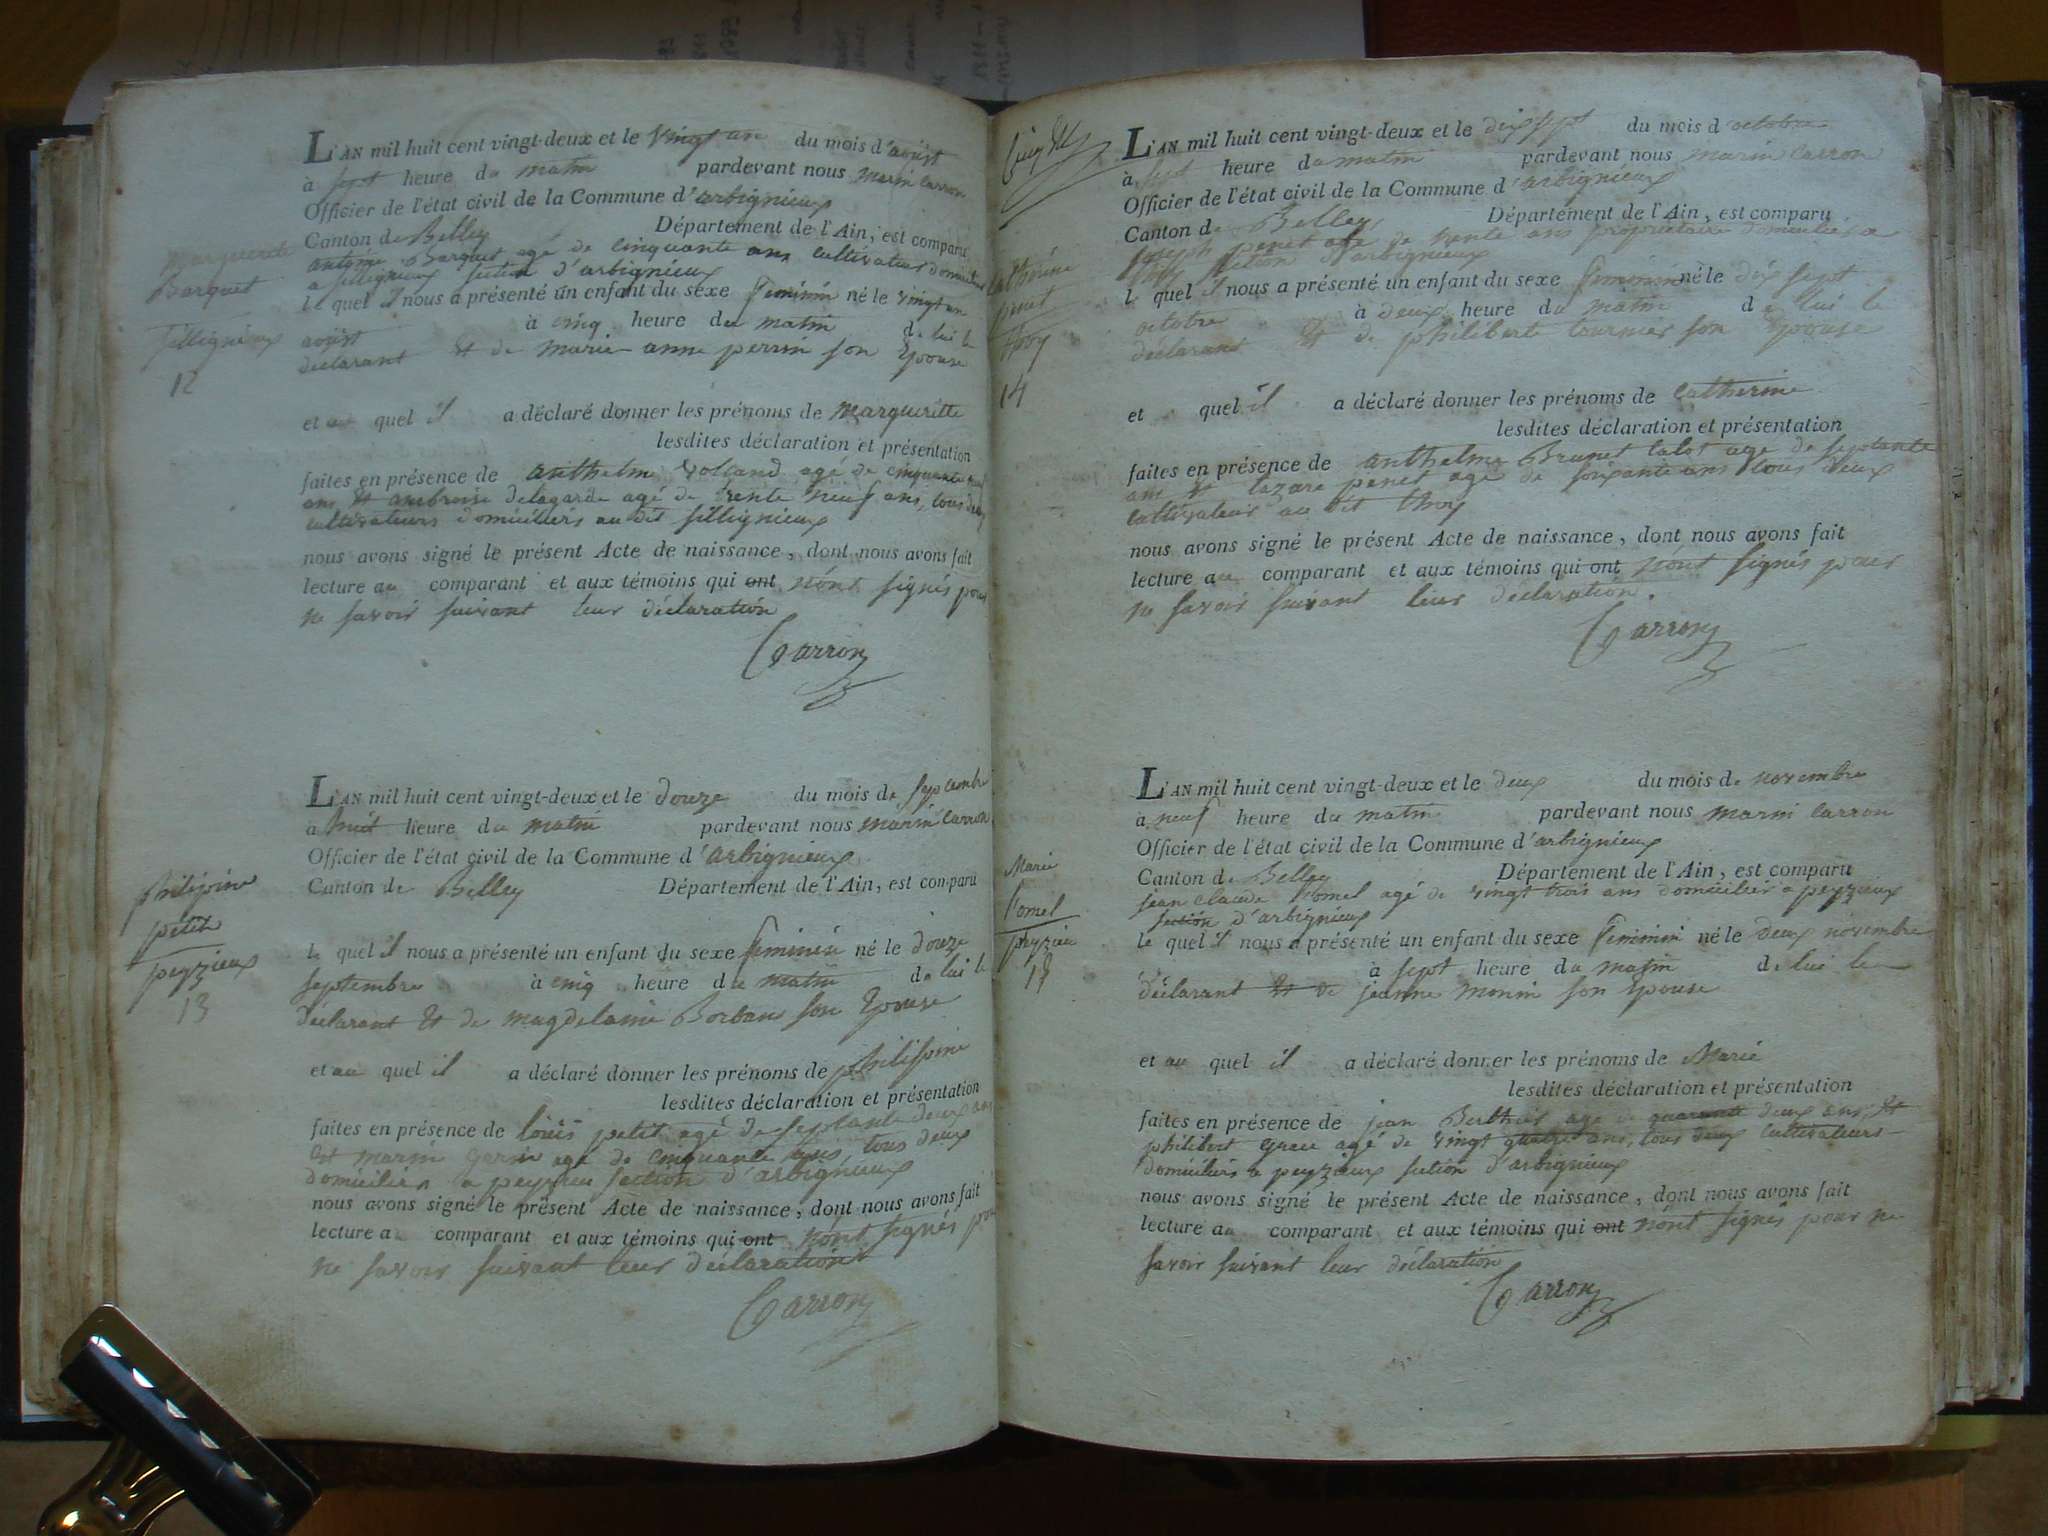 L'AN mil huit cent vingt-deux et le vingt un du mois d'août
à sept heure du matin pardevant nous marin carron
Officier de l'état civil de la Commune d'arbignieux
Canton de Belley Département de l'Ain, est comparu
antoine Barquet agé de cinquante ans cultivateur domicilié
a sillignieux section d'arbignieux
le quel il nous a présenté un enfant du sexe feminin né le vingt un
août à cinq heure du matin de lui le
déclarant et de marie anne perrin son Epouse
et au quel il a déclaré donner les prénoms de margueritte
lesdites déclaration et présentation
faites en présence de anthelme volland agé de cinquante
ans et ambroise delagarde agé de trente neuf ans, tous deux
cultivateurs domiciliés au dit sillignieux
nous avons signé le présent Acte de naissance, dont nous avons fait
lecture au comparant et aux témoins qui ont n'ont signés pour
ne savoir suivant leur déclaration
Carron
marguerite
Barquet
sillignieux
12
L'AN mil huit cent vingt-deux et le douze du mois de septembre
à huit heure du matin pardevant nous marin carron
Officier de l'état civil de la Commune d'arbignieux
Canton de Belley Département de l'Ain, est comparu
le quel il nous a présenté un enfant du sexe feminin né le douze
septembre à cinq heure du matin de lui le
déclarant et de magdelaine Borban son Epouse
et au quel il a déclaré donner les prénoms de philippine
lesdites déclaration et présentation
faites en présence de louis petit agé de septante deux ans
et marin garin agé de cinquante ans, tous deux
domiciliés a peyzieu section d'arbignieux
nous avons signé le présent Acte de naissance, dont nous avons fait
lecture au comparant et aux témoins qui ont n'ont signés pour
ne savoir suivant leur déclaration
Carron
philipine
petit
peyzieux
13
L'AN mil huit cent vingt-deux et le dix sept du mois d octobre
à sept heure du matin pardevant nous marin carron
Officier de l'état civil de la Commune d'arbignieux
Canton de Belley Département de l'Ain, est comparu
joseph penet agé de trente ans propriétaire domicilié a
thoy section d'arbignieux
le quel il nous a présenté un enfant du sexe feminin né le dix sept
octobre à deux heure du matin de lui le
déclarant et de philibert tournier son Epouse
et quel il a déclaré donner les prénoms de catherine
lesdites déclaration et présentation
faites en présence de anthelme Brunet talot agé de septante
ans et lazare penet agé de soixante ans tous deux
cultivateur au dit thoy
nous avons signé le présent Acte de naissance, dont nous avons fait
lecture au comparant et aux témoins qui ont n'ont signés pour
ne savoir suivant leur déclaration.
Carron
catherine
penet
thoy
14
L'AN mil huit cent vingt-deux et le deux du mois de novembre
à neuf heure du matin pardevant nous marin carron
Officier de l'état civil de la Commune d'arbignieux
Canton de Belley Département de l'Ain, est comparu
jean claude Comel agé de vingt trois ans domicilier a peyzieux
section d'arbignieux
le quel il nous a présenté un enfant du sexe feminin né le deux novembre
à sept heure du matin de lui le
déclarant et de jeanne monin son Epouse
et au quel il a déclaré donner les prénoms de Marie
lesdites déclaration et présentation
faites en présence de jean Berthet agé de quarante deux ans et
philibert grace agé de vingt quatre ans, tous deux cultivateurs
domiciliés a peyzieux section d'arbignieux
nous avons signé le présent Acte de naissance, dont nous avons fait
lecture au comparant et aux témoins qui ont n'ont signés pour ne
savoir suivant leur déclaration
Carron
Marie
Comel
peyzieu